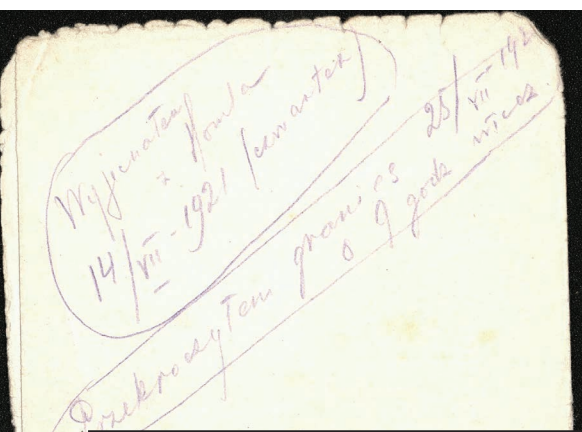 Wyjechałem
z Homla
14/VII - 1921 (czwartek)
Przekroczyłem granicę 25/VII 192
o 9 godz wiecz.